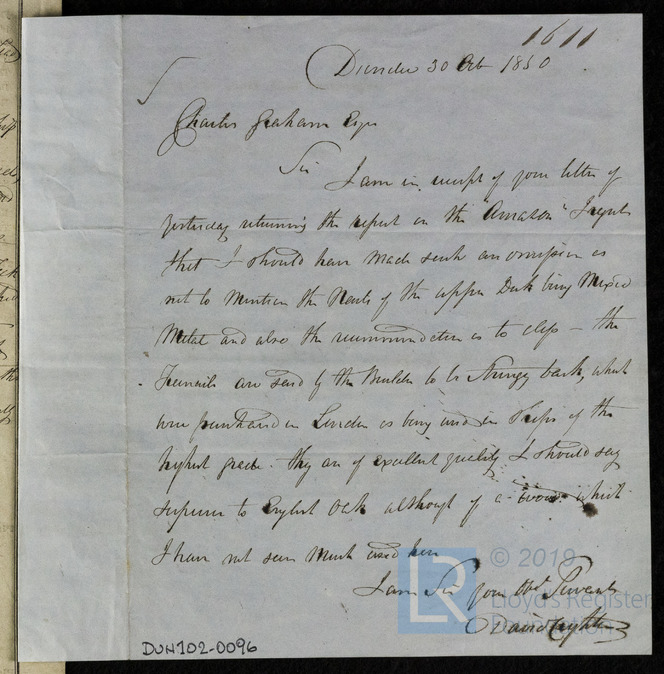 1611
Dundee 30 Oct 1850
Charles Graham Esqr
Sir
I am in receipt of your letter of
yesterday returning the report on the "Amazon" I regret
that I should have made such an omission as
not to mention the Nails of the upper Deck being Mixed
Metal and also the recommendation as to class - the
Treenails are said by the Builder to be Stringy bark, which
were purchased in London as being used in Ships of the
highest grade. they are of excellent quality I should say
superior to English Oak although of a wood which
I have not seen much used here
I am Sir your Obdt Servant
David
DUN102-0096
© 2019
LR
Lloyd's Register
Foundation